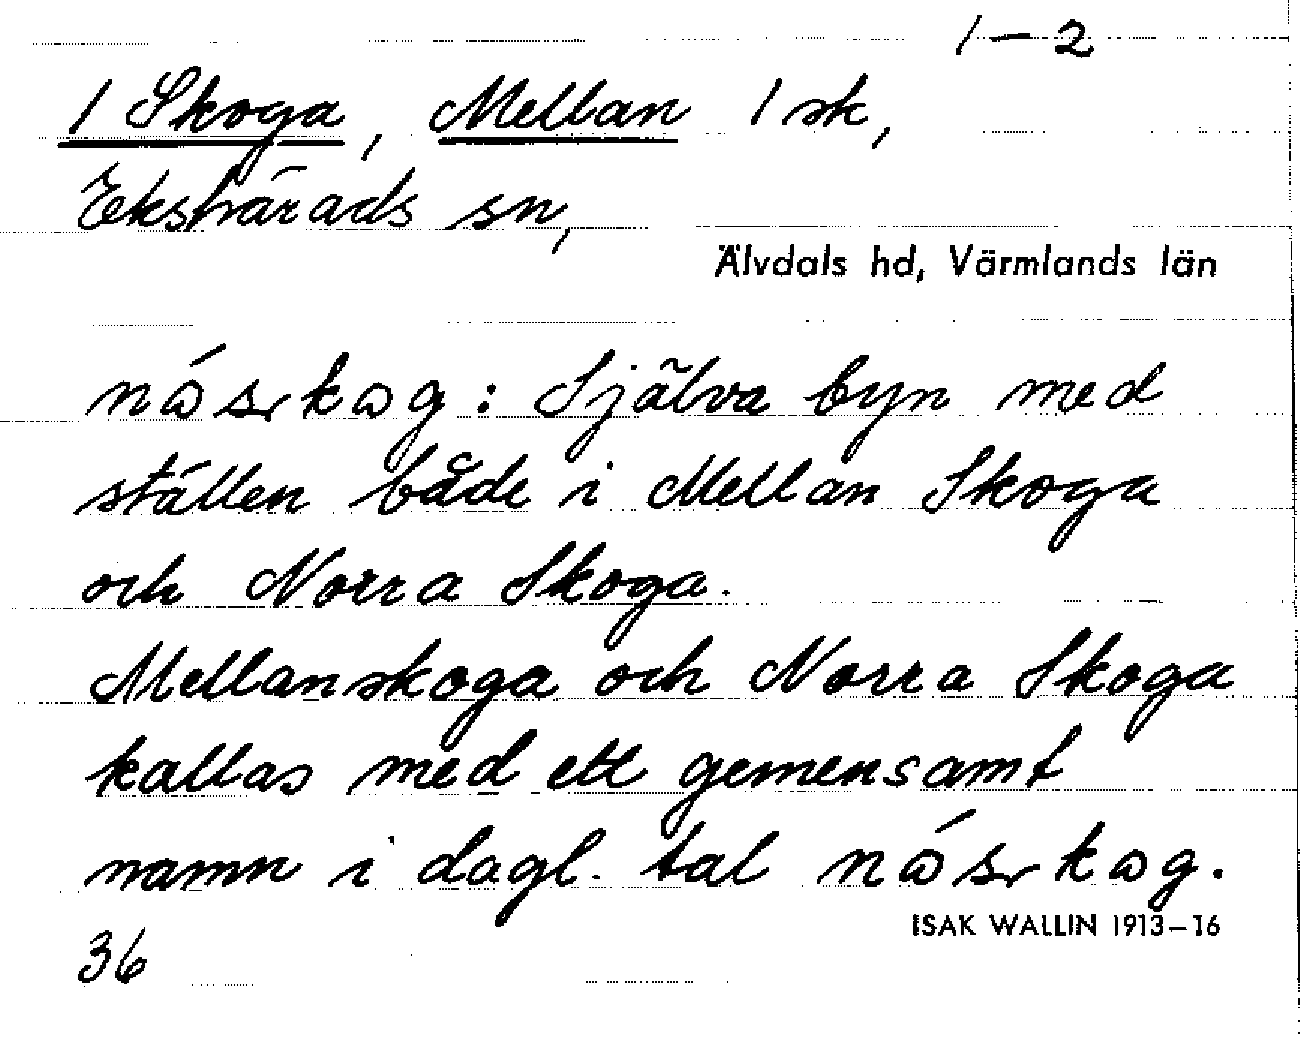 1-2
1 Skoga, Mellan 1 sk,
Ekshärads sn,
Älvdals hd, Värmlands län
nósrkag: Själva byn med
ställen både i Mellan Skoga
och Norra Skoga.
Mellanskoga och Norra Skoga
kallas med ett gemensamt
namn i dagl. tal nósrkag.
ISAK WALLIN 1913-16
36